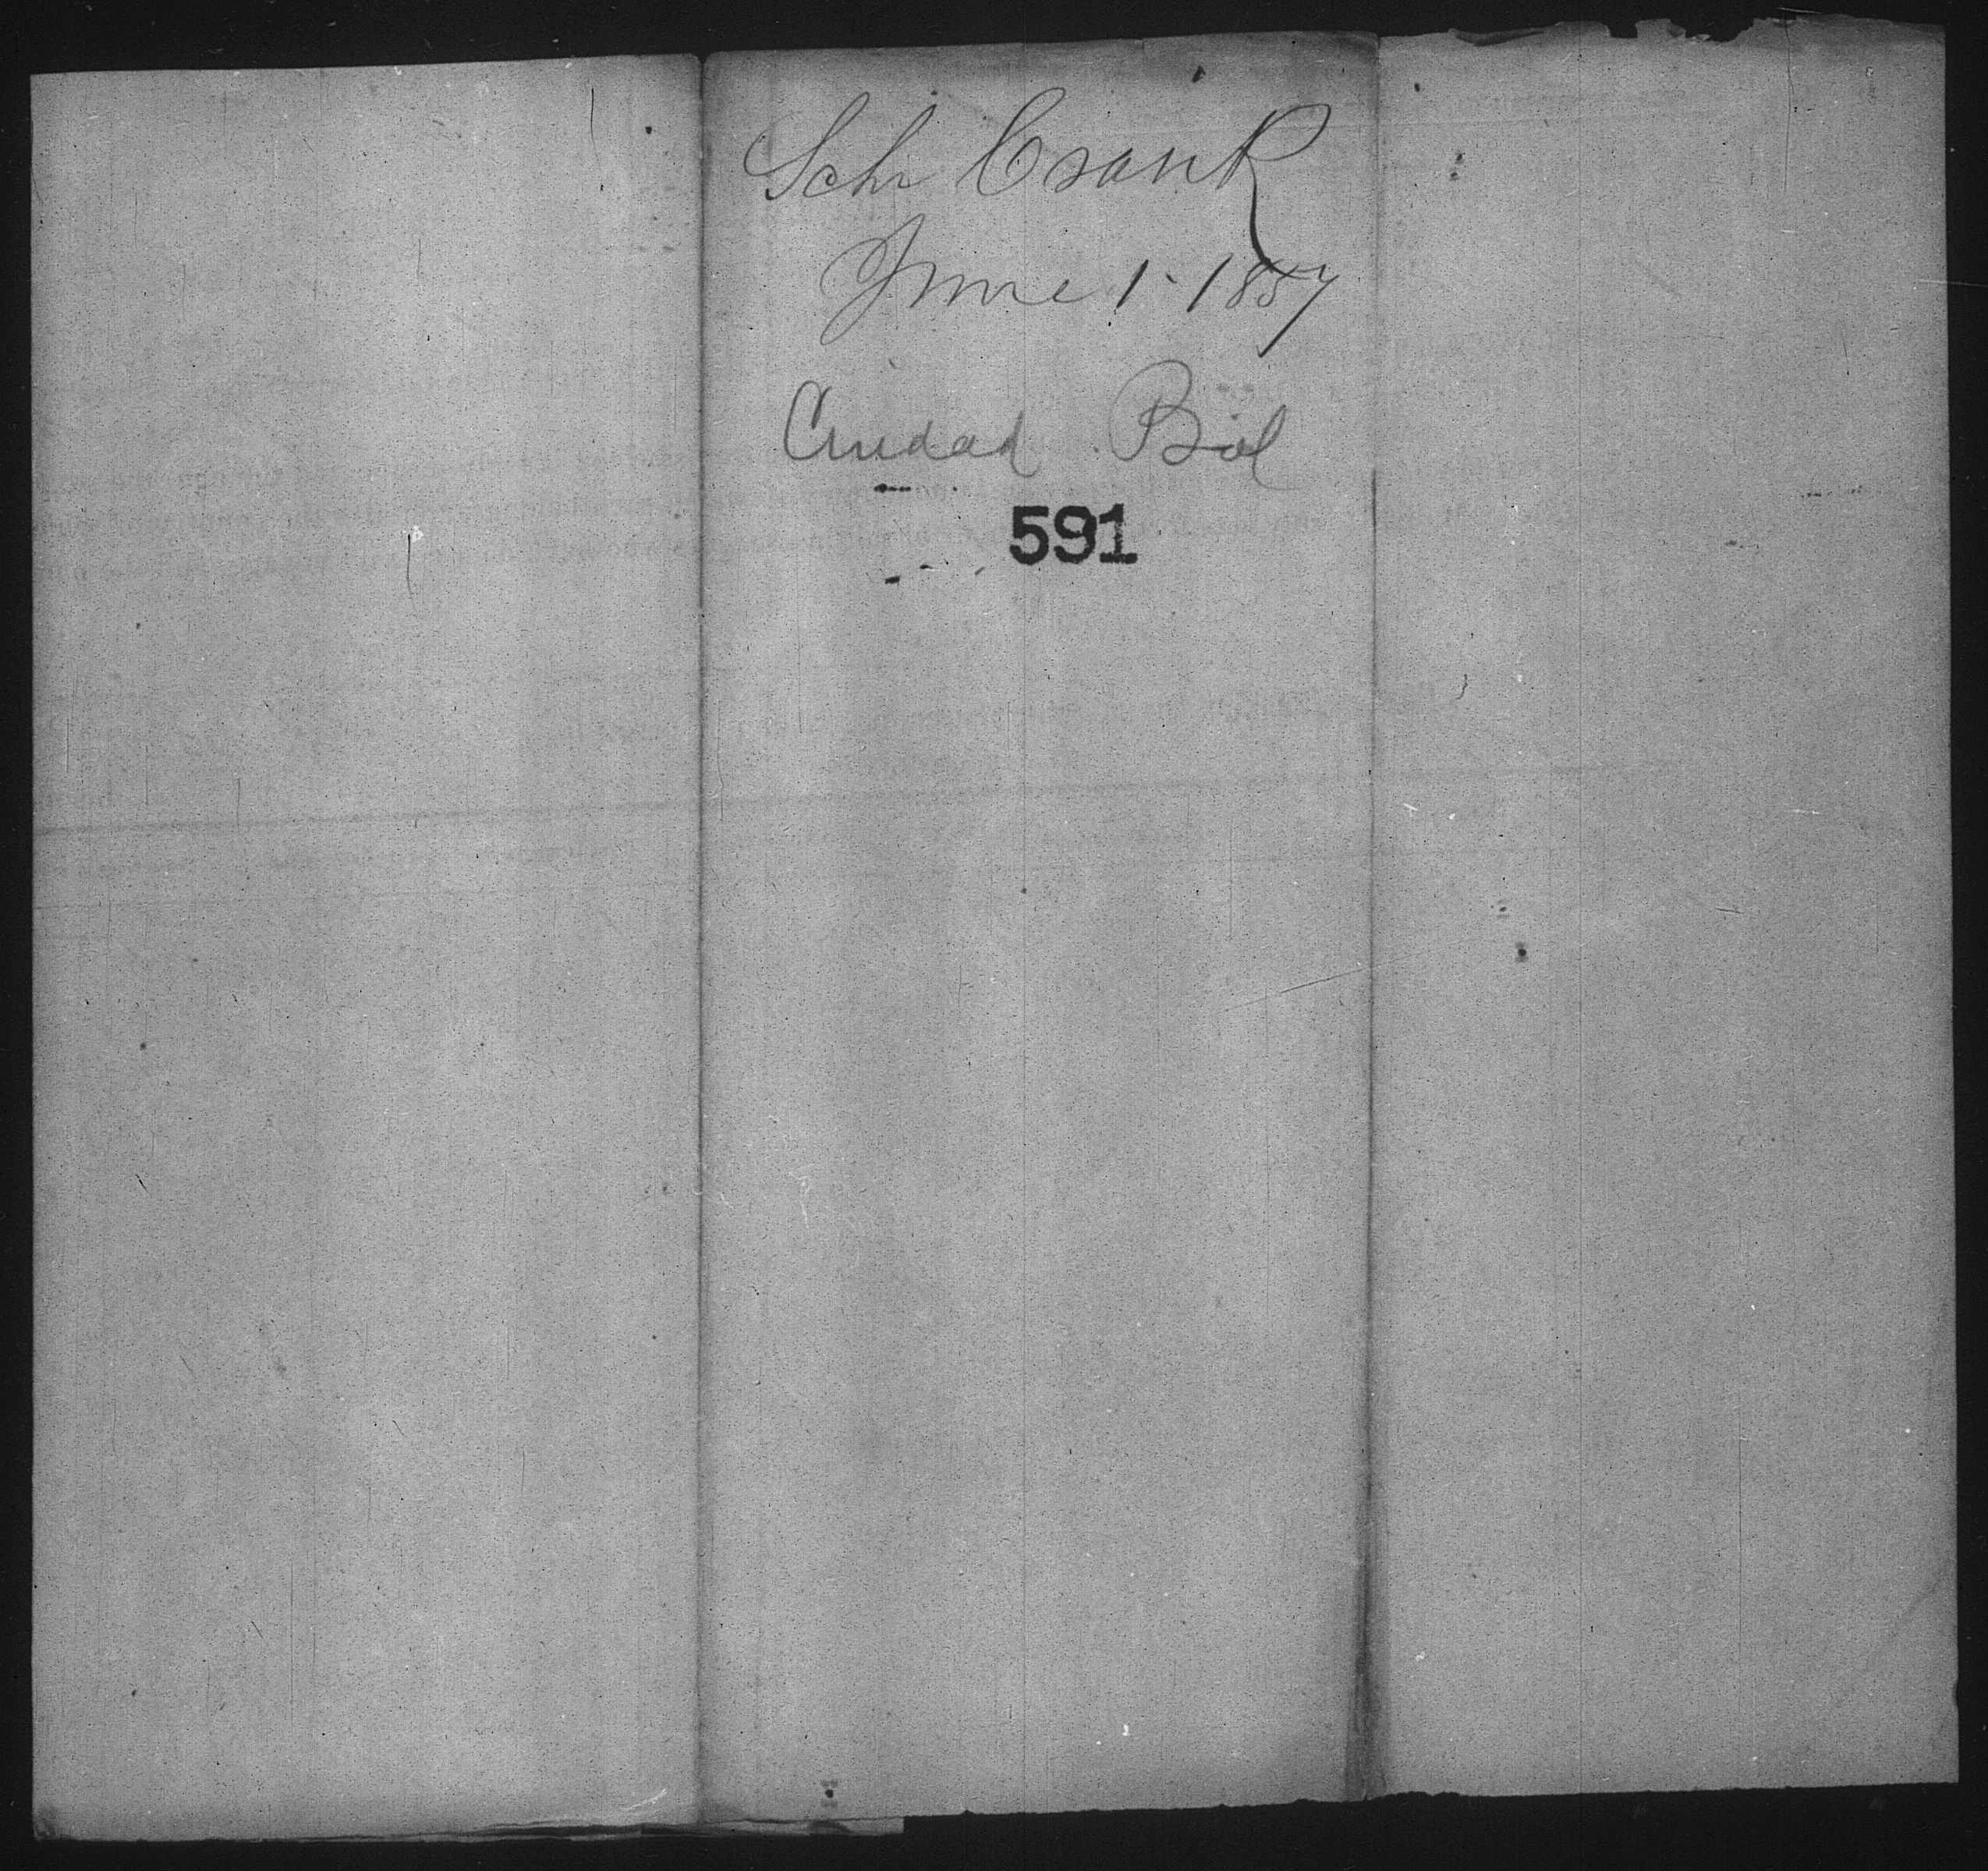 Schr Crank
June 1 - 1887
Ciudad Bol
591